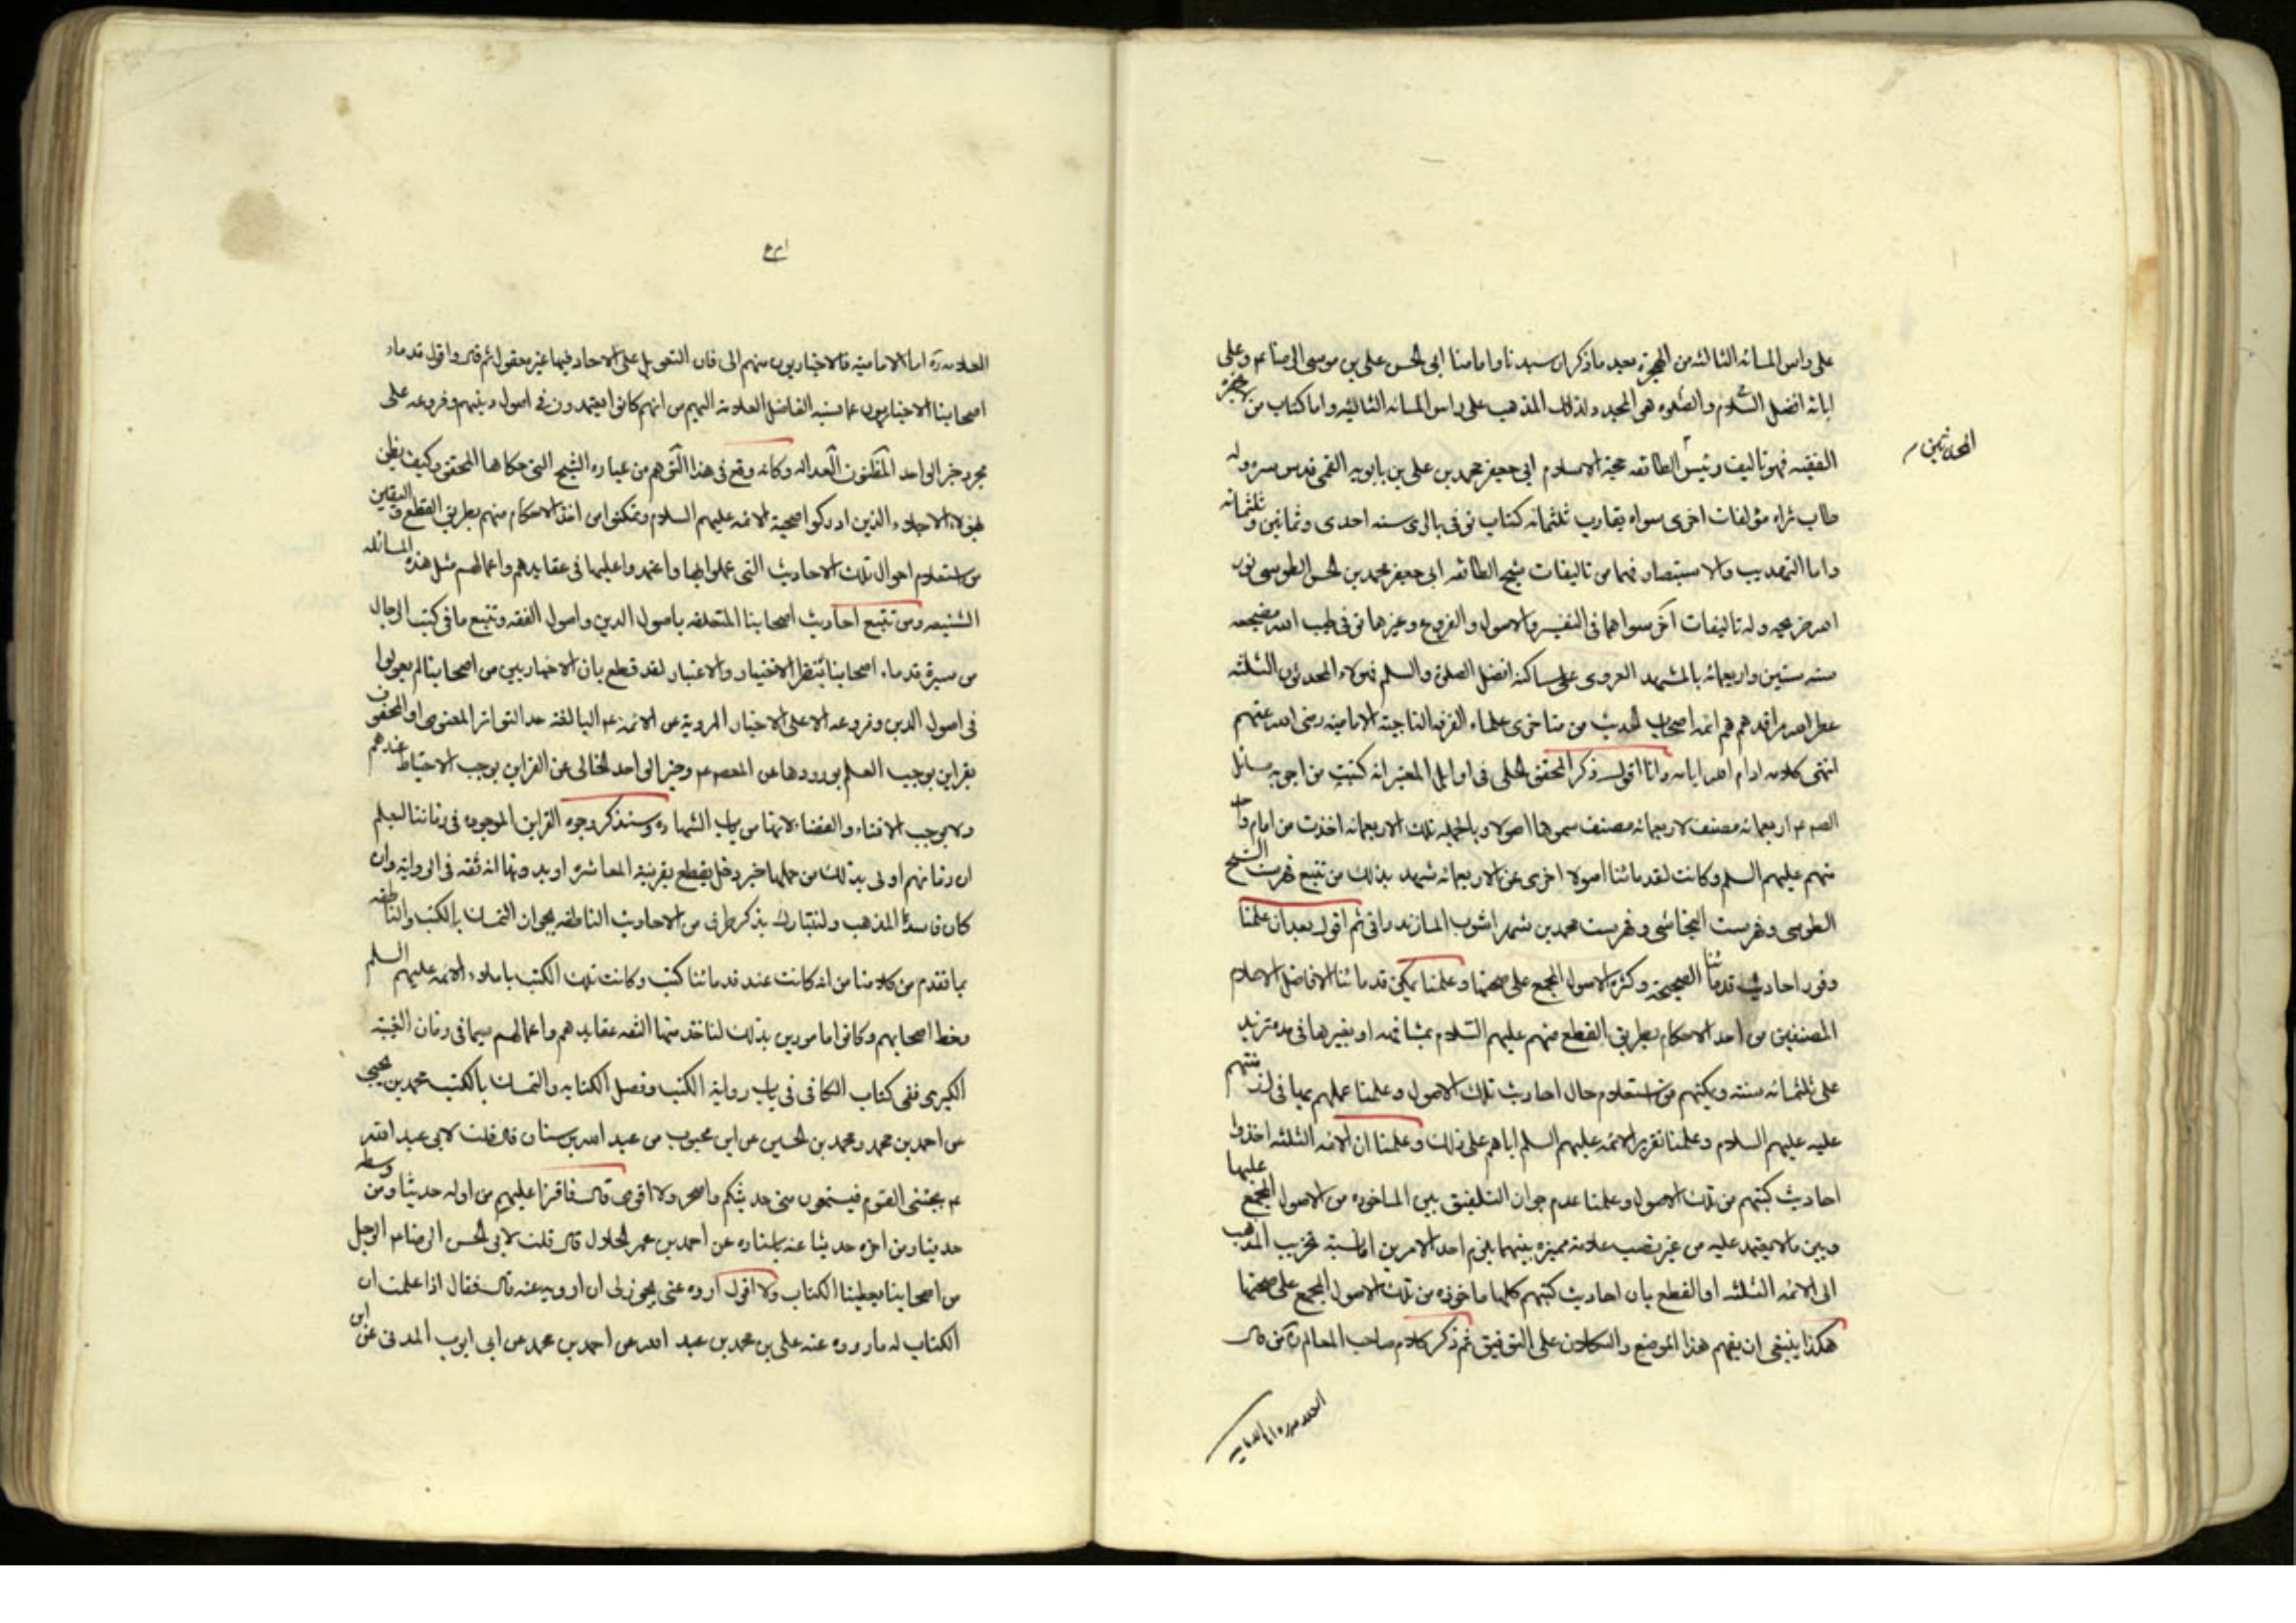 على راس المائه الثالثه من الهجرة بعد ما ذكر ان سيدنا وامامنا ابى الحسن على بن موسى الرضا عم وعلى
ابائه افضل السلام والصلوه هو المجدد لذلك المذهب على راس المائه الثانيه واما كتاب من لا يحضره
الفقيه فهو تاليف رئيس المحدثين حجة الاسلام ابى جعفر محمد بن على بن بابويه القمى قدس سره وله
طاب ثراه مؤلفات اخرى سواه يقارب ثلثمائه كتاب توفى بالرى سنه احدى وثمانين وثلثمائه
واما التهذيب والاستبصار فهما من تاليفات شيخ الطائفه ابى جعفر محمد بن الحسن الطوسى نور
الله ضريحه وله تاليفات اخر سواهما فى التفسير والاصول والفروع وغيرها توفى طيب الله مضجعه
سنه ستين واربعمائه بالمشهد الغروى على ساكنه افضل الصلوة والسلم فهولاء المحدثون الثلثه
عطر الله مراقدهم هم ائمه اصحاب الحديث من متاخرى علماء الفرقه الناجية الامامية رضى الله عنهم
انتهى كلامه ادام الله ايامه وانا اقول ذكر المحقق الحلى فى اوايل المعتبر انه كتبت من اجوبه مسائل
الصم عم اربعمائه مصنف لاربعمائه مصنف سموها اصولا وبالجمله تلك الاربعمائه اخذت من امام واحد
منهم عليهم السلم وكانت لقدمائنا اصولا اخرى غير الاربعمائه شهد بذلك من تتبع فهرست الشيخ
الطوسى وفهرست النجاشى وفهرست محمد بن شهراشوب المازندرانى ثم اقول بعد ان علمنا
وفور احاديث قدمائنا الصحيحة وكثرة الاصول المجمع على صحتها وعلمنا تمكن قدمائنا الافاضل الاعلام
المصنفين من اخذ الاحكام بطريق القطع منهم عليهم السلام بمشافهه او بغيرها فى مده تزيد
على ثلثمائه سنه وتمكنهم من استعلام حال احاديث تلك الاصول وعلمنا عملهم بما فى
عليه عليهم السلام وعلمنا تقرير الائمه عليهم السلم اياهم على ذلك وعلمنا ان الائمه الثلثه اخذوا
احاديث كتبهم من تلك الاصول وعلمنا عدم جواز التلفيق بين الماخوذه من الاصول المجمع عليها
وبين ما لا يعتمد عليه من غير نصب علامة مميزه بينهما يلزم احد الامرين اما نسبة تخريب المذهب
الى الائمه الثلثه او القطع بان احاديث كتبهم كلها ماخوذه من تلك الاصول المجمع على صحتها
هكذا ينبغى ان يفهم هذا الموضع والتكلان على التوفيق ثم ذكر كلام صاحب المعالم
المحدثين
العلامه ره اما الامامية فالاخباريون منهم الى فان التعويل على الاحاد فيها غير معقول ثم قال واقول قدماء
اصحابنا الاخباريون عما نسبه الفاضل العلامة اليهم من انهم كانوا يعتمدون فى اصول دينهم وفروعه على
مجرد خبر الواحد المظنون العداله وكانه وقع فى هذا التوهم من عباره الشيخ التى حكاها المحقق وكيف يظن
بهولاء الاجلاء الذين ادركوا صحبة الائمه عليهم السلام وتمكنوا من اخذ الاحكام منهم بطريق القطع واليقين
من استعلام احوال تلك الاحاديث التى عملوا بها واعتمدوا عليها فى عقايدهم واعمالهم مثل هذه المسائله
الشنيعه ومن تتبع احاديث اصحابنا المتعلقه باصول الدين واصول الفقه وتتبع ما فى كتب الرجال
من سيرة قدماء اصحابنا بنظر الاختيار والاعتبار لقد قطع بان الاخباريين من اصحابنا لم يعولوا
فى اصول الدين وفروعه الا على الاخبار المروية عن الائمة عم البالغة حد التواتر المعنوى او المحفوف
بقراين يوجب العلم بورودها عن المعصم عم وخبر الواحد الخالى عن القراين يوجب الاحتياط عندهم
ولا يوجب الافتاء والقضاء لانهما من باب الشهاده وسنذكر وجوه القراين الموجوده فى زماننا ليعلم
ان زمانهم اولى بذلك من جملها خبر رجل يقطع بقرينة المعاشره او بدونها انه ثقه فى الروايه وان
كان فاسد المذهب ولنتبارك بذكر طرفى من الاحاديث الناطقه بجواز التمسك بالكتب والناطقه
بما تقدم من كلامنا من انه كانت عند قدمائنا كتب وكانت تلك الكتب باملاء الائمه عليهم السلم
وخط اصحابهم وكانوا مامورين بذلك لناخذ منها الشيعه عقايدهم واعمالهم سيما فى زمان الغيبته
الكبرى ففى كتاب الكافى فى باب رواية الكتب وفضل الكتابه والتمسك بالكتب محمد بن يحيى
عن احمد بن محمد ومحمد بن الحسين عن ابن محبوب عن عبد الله بن سنان قال قلت لابى عبد الله
عم يجئنى القوم فيستمعون منى حديثكم واضجر ولا اقوى قال فاقرا عليهم من اوله حديثا ومن وسطه
حديثا ومن اخره حديثا عنه باسناده عن احمد بن عمر الحلال قال قلت لابى الحسن الرضا عم الرجل
من اصحابنا يعطينا الكتاب ولا اقول اروه عنى يجوز لى ان ارويه عنه قال فقال اذا علمت ان
الكتاب له فاروه عنه على بن محمد بن عبد الله عن احمد بن محمد عن ابى ايوب المدنى عن ابن